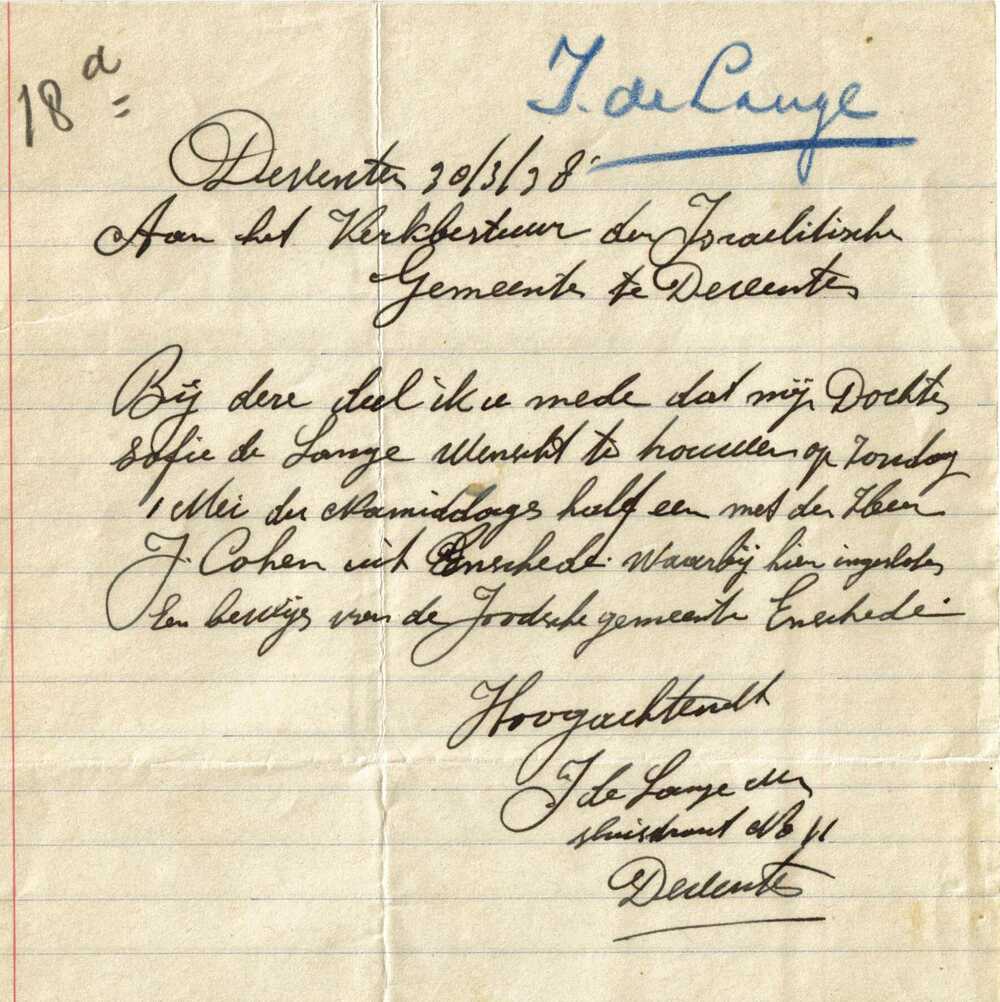 18 d
J. de Lange
Deventer 30/3/38
Aan het Kerkbestuur der Israelitische
Gemeente te Deventer
Bij deze deel ik u mede dat mijn Dochter
Sofie de Lange Wenscht te trouwen op Zondag
1 Mei des Namiddags half een met den Heer
J. Cohen uit Enschede. Waarbij hier ingesloten
Een bewijs van de Joodsche gemeente Enschede.
Hoogachtendt
J de Lange
No 11
Deventer